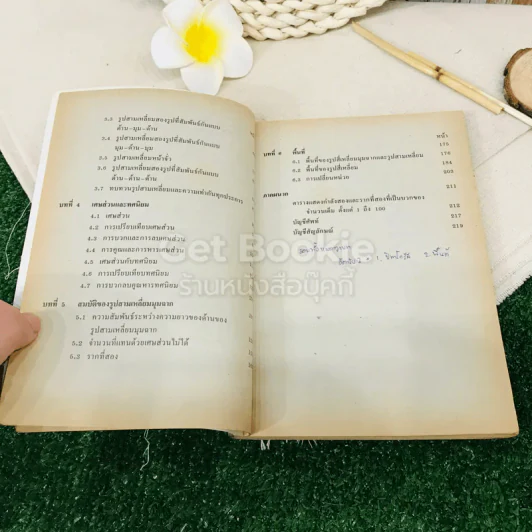 3.3 รูปสามเหลี่ยมสองรูปที่สัมพันธ์กันแบบ
ด้าน-มุม-ด้าน
3.4 รูปสามเหลี่ยมสองรูปที่สัมพันธ์กันแบบ
มุม-ด้าน-มุม
3.5 รูปสามเหลี่ยมหน้าจั่ว
3.6 รูปสามเหลี่ยมสองรูปที่สัมพันธ์กันแบบ
ด้าน-ด้าน-ด้าน
3.7 ทบทวนรูปสามเหลี่ยมและความเท่ากันทุกประการ
บทที่ 4 เศษส่วนและทศนิยม
4.1 เศษส่วน
4.2 การเปรียบเทียบเศษส่วน
4.3 การบวกและการลบเศษส่วน
4.4 การคูณและการหารเศษส่วน
4.5 เศษส่วนกับทศนิยม
4.6 การเปรียบเทียบทศนิยม
4.7 การบวกลบคูณหารทศนิยม
บทที่ 5 สมบัติของรูปสามเหลี่ยมมุมฉาก
5.1 ความสัมพันธ์ระหว่างความยาวของด้านของ
รูปสามเหลี่ยมมุมฉาก
5.2 จำนวนที่แทนด้วยเศษส่วนไม่ได้
5.3 รากที่สอง
หน้า
บทที่ 6 พื้นที่ 175
6.1 พื้นที่ของรูปสี่เหลี่ยมมุมฉากและรูปสามเหลี่ยม 176
6.2 พื้นที่ของรูปสี่เหลี่ยม 184
6.3 การเปลี่ยนหน่วย 203
ภาคผนวก 211
ตารางแสดงกำลังสองและรากที่สองที่เป็นบวกของ
จำนวนเต็ม ตั้งแต่ 1 ถึง 100 212
บัญชีศัพท์ 217
บัญชีสัญลักษณ์ 219
Get Bookie
ร้านหนังสือบุ๊คกี้